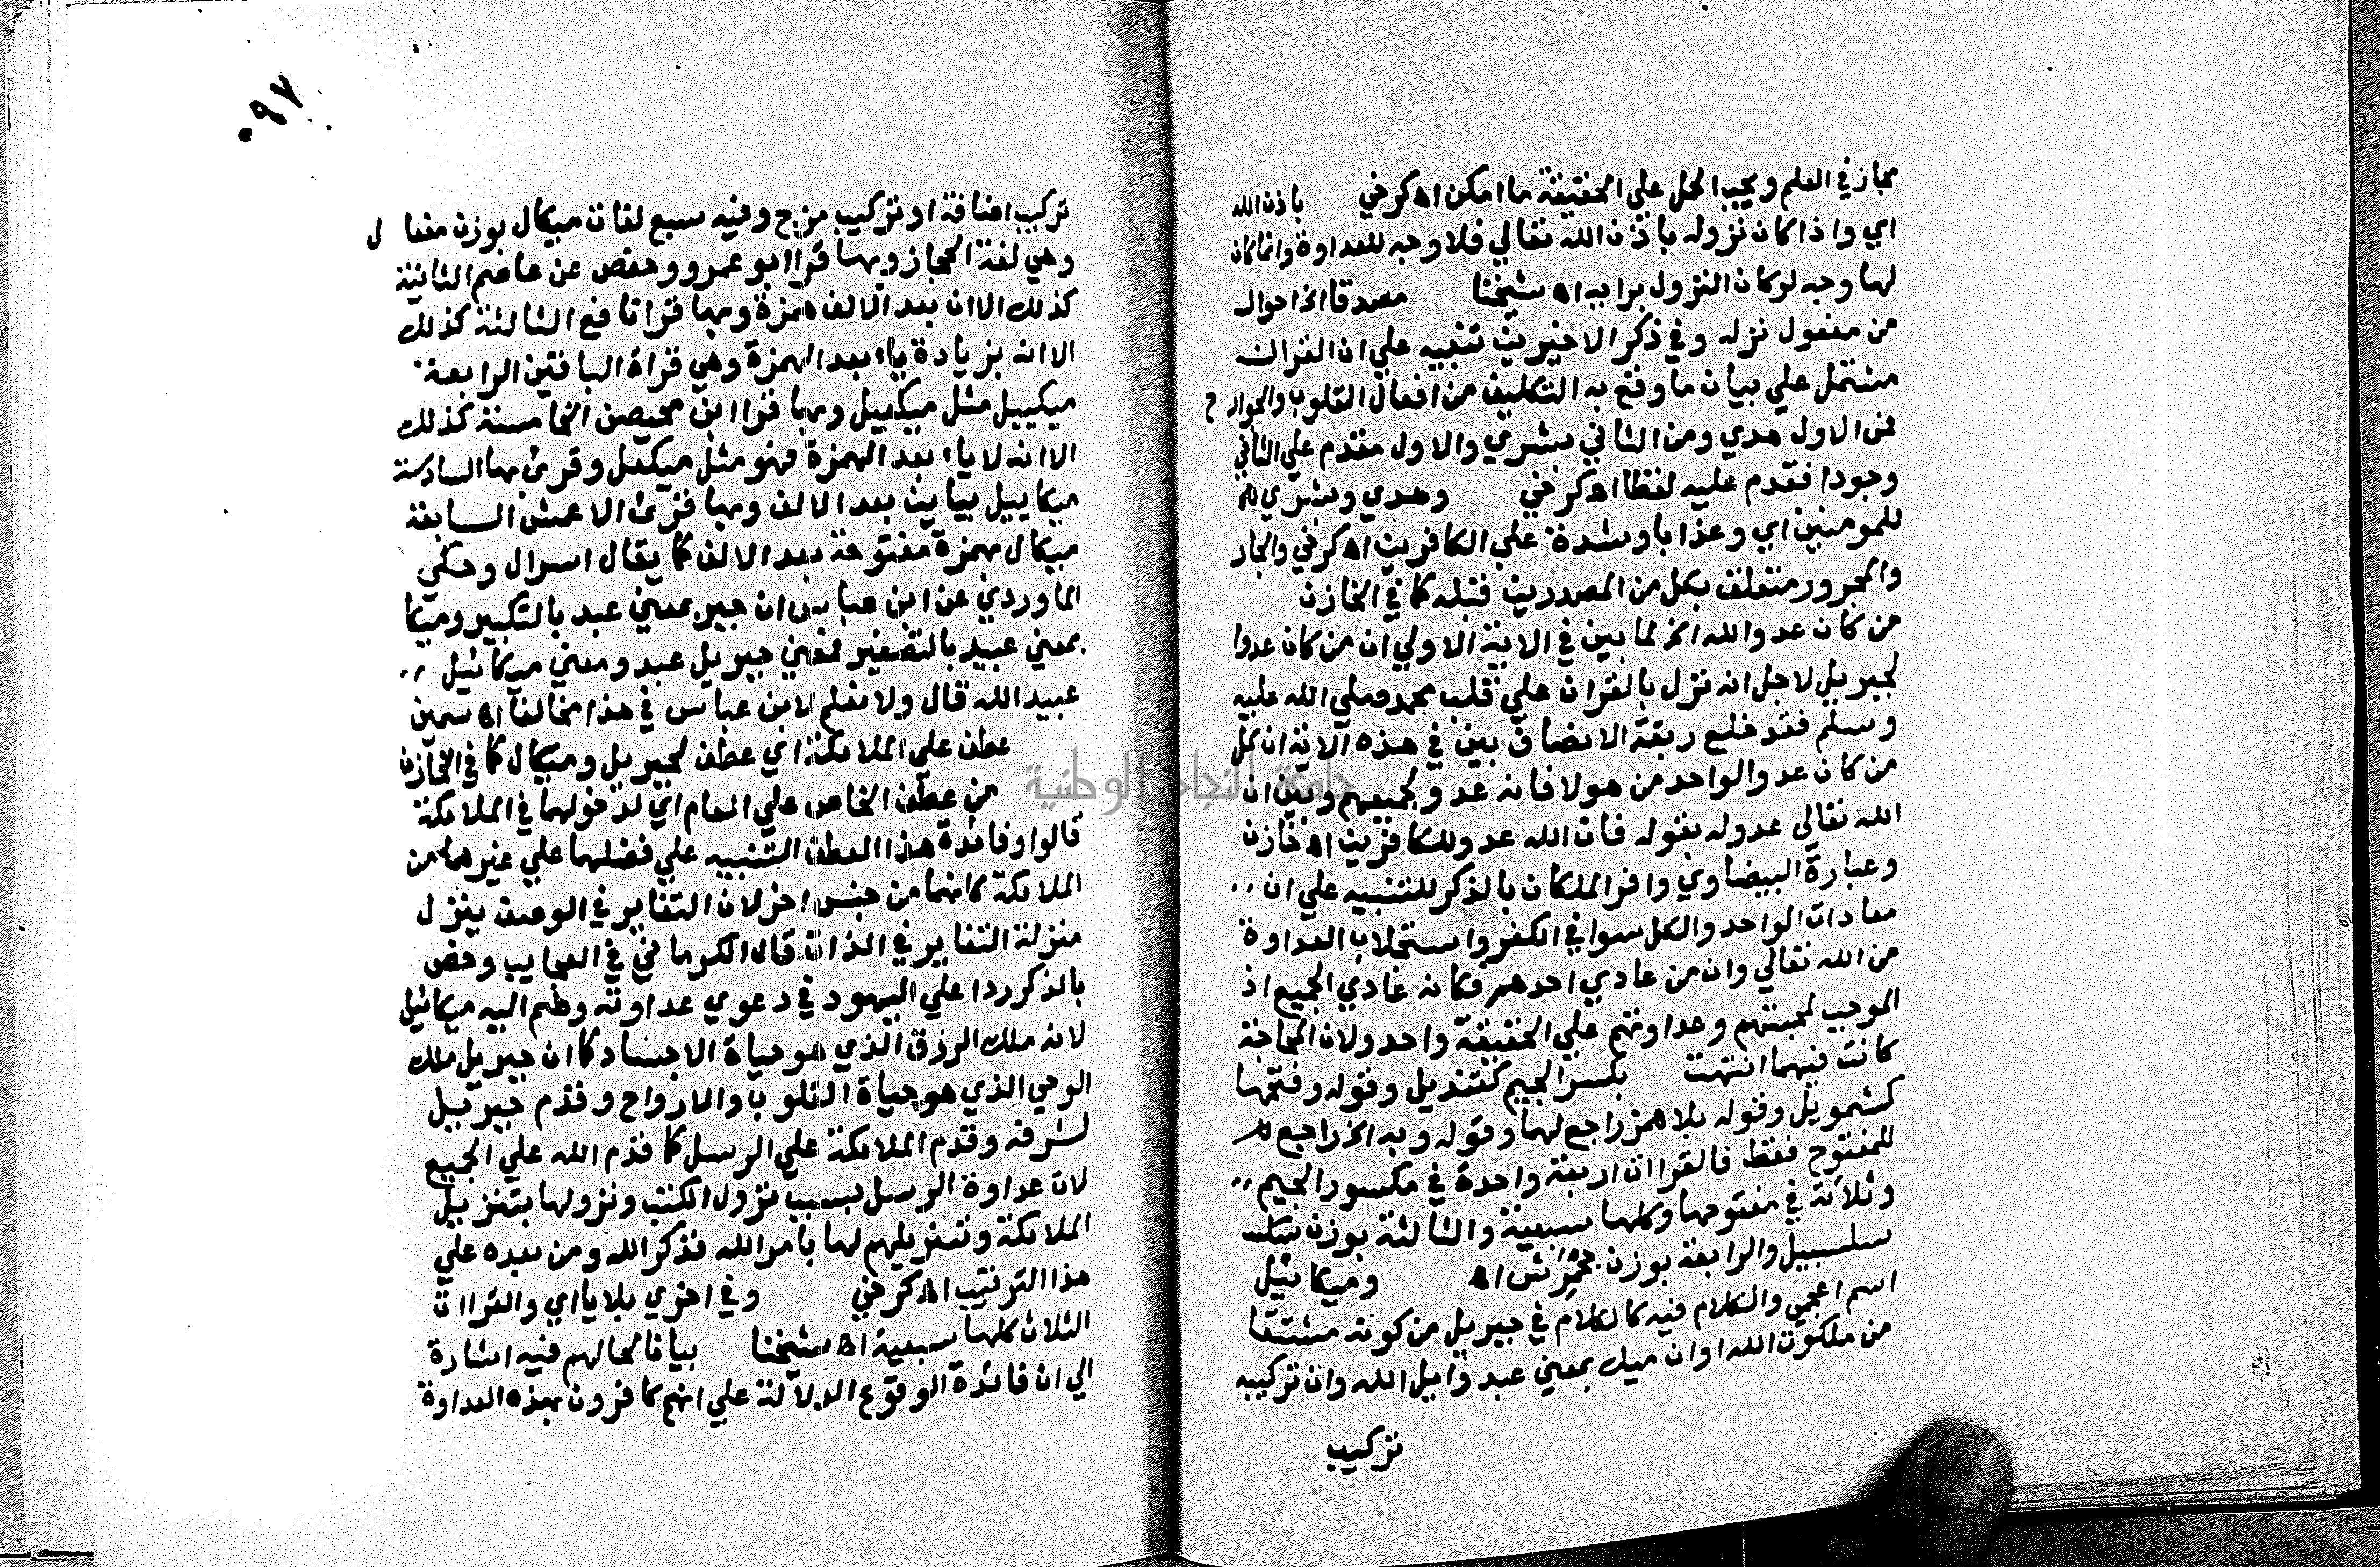 مجاز في العلم ويجب الحمل علي الحقيقة ما امكن اه كرخي باذن الله
اي واذا كان نزوله باذن الله تعالي فلا وجه للعداوة وانما كان
لها وجه لو كان النزول برايه اه شيخنا مصدقا الخ احوال
من مفعول نزله وفي ذكر الاخيرين تنبيه علي ان القران
مشتمل علي بيان ما وقع به التكليف من افعال القلوب والجوارح
فمن الاول هدي ومن الثاني بشري والاول مقدم علي الثاني
وجودا فقدم عليه لفظا اه كرخي وهدي وبشري
للمومنين اي وعذابا وشدة علي الكافرين اه كرخي والجار
والمجرور متعلق بكل من المصدرين قبله كما في الخازن
من كان عدوا لله الخ لما بين في الاية الاولي ان من كان عدوا
لجبريل لاجل انه نزل بالقران علي قلب محمد صلي الله عليه
وسلم فقد خلع ربقة الانصاف بين في هذه الاية ان كل
من كان عدوا لواحد من هولا فانه عدو لجميعهم وبين ان
الله تعالي عدوله بقوله فان الله عدو للكافرين اه خازن
وعبارة البيضاوي وافرد الملكان بالذكر للتنبيه علي ان
معادات الواحد والكل سوا في الكفر واستجلاب العداوة
من الله تعالي وان من عادي احدهم فكانه عادي الجميع اذ
الموجب لمحبتهم وعداوتهم علي الحقيقة واحد ولان المحاجة
كانت فيهما انتهت بكسر الجيم كقنديل وقوله وفتحها
كشمويل وقوله بلا همز راجع لهما وقوله وبه الخ راجع
للمفتوح فقط فالقراات اربعة واحدة في مكسور الجيم
وثلاثة في مفتوحها وكلها سبعية والثالثة بوزن
سلسبيل والرابعة بوزن جحمرش اه وميكائيل
اسم اعجمي والكلام فيه كالكلام في جبريل من كونه مشتقا
من ملكوت الله او ان ميك بمعني عبد وايل الله وان تركيبه
تركيب
٠٩٧
تركيب اضافة او تركيب مزج وفيه سبع لغات ميكال بوزن مفعال
وهي لغة الحجاز وبها قرا ابو عمرو وحفص عن عاصم الثانية
كذلك الا ان بعد الالف همزة وبها قرا نافع الثالثة كذلك
الا انه بزيادة ياء بعد الهمزة وهي قراة الباقين الرابعة
ميكييل مثل ميكعيل وبها قرا ابن محيصن الخامسة كذلك
الا انه لا ياء بعد الهمزة فهو مثل ميكعل وقرئ بها السادسة
ميكاييل بيايين بعد الالف وبها قرئ الاعمش السابعة
ميكال بهمزة مفتوحة بعد الالف كما يقال اسرال وحكي
الماوردي عن ابن عباس ان جبر بمعني عبد بالتكبير وميكا
بمعني عبيد بالتصغير فمعني جبريل عبد ومعني ميكائيل
عبيد الله قال ولا نعلم لابن عباس في هذا مخالفا اه سمين
عطف علي الملائكة اي عطف لجبريل وميكال كما في الخازن
من عطف الخاص علي العام اي لدخولهما في الملائكة
قالوا وفائدة هذا العطف التنبيه علي فضلهما علي غيرهما من
الملائكة كانهما من جنس اخر لان التغاير في الوصف ينزل
منزلة التغاير في الذات قال الكرماني في العجايب وخص
بالذكر ردا علي اليهود في دعوي عداوته وضم اليه ميكائيل
لانه ملك الرزق الذي هو حياة الاجساد كما ان جبريل ملك
الوحي الذي هو حياة القلوب والارواح وقدم جبرييل
لشرفه وقدم الملائكة علي الرسل كما قدم الله علي الجميع
لان عداوة الرسل بسبب نزول الكتب ونزولها بتنزيل
الملائكة وتنزيلهم لها بامر الله فذكر الله ومن بعده علي
هذا الترتيب اه كرخي وفي اخري بلا يا اي والقراات
الثلاث كلها سبعية اه شيخنا بيانا لحالهم فيه اشارة
الي ان فائدة الوقوع الدلالة علي انهم كافرون بهذه العداوة
جامعة النجاح الوطنية